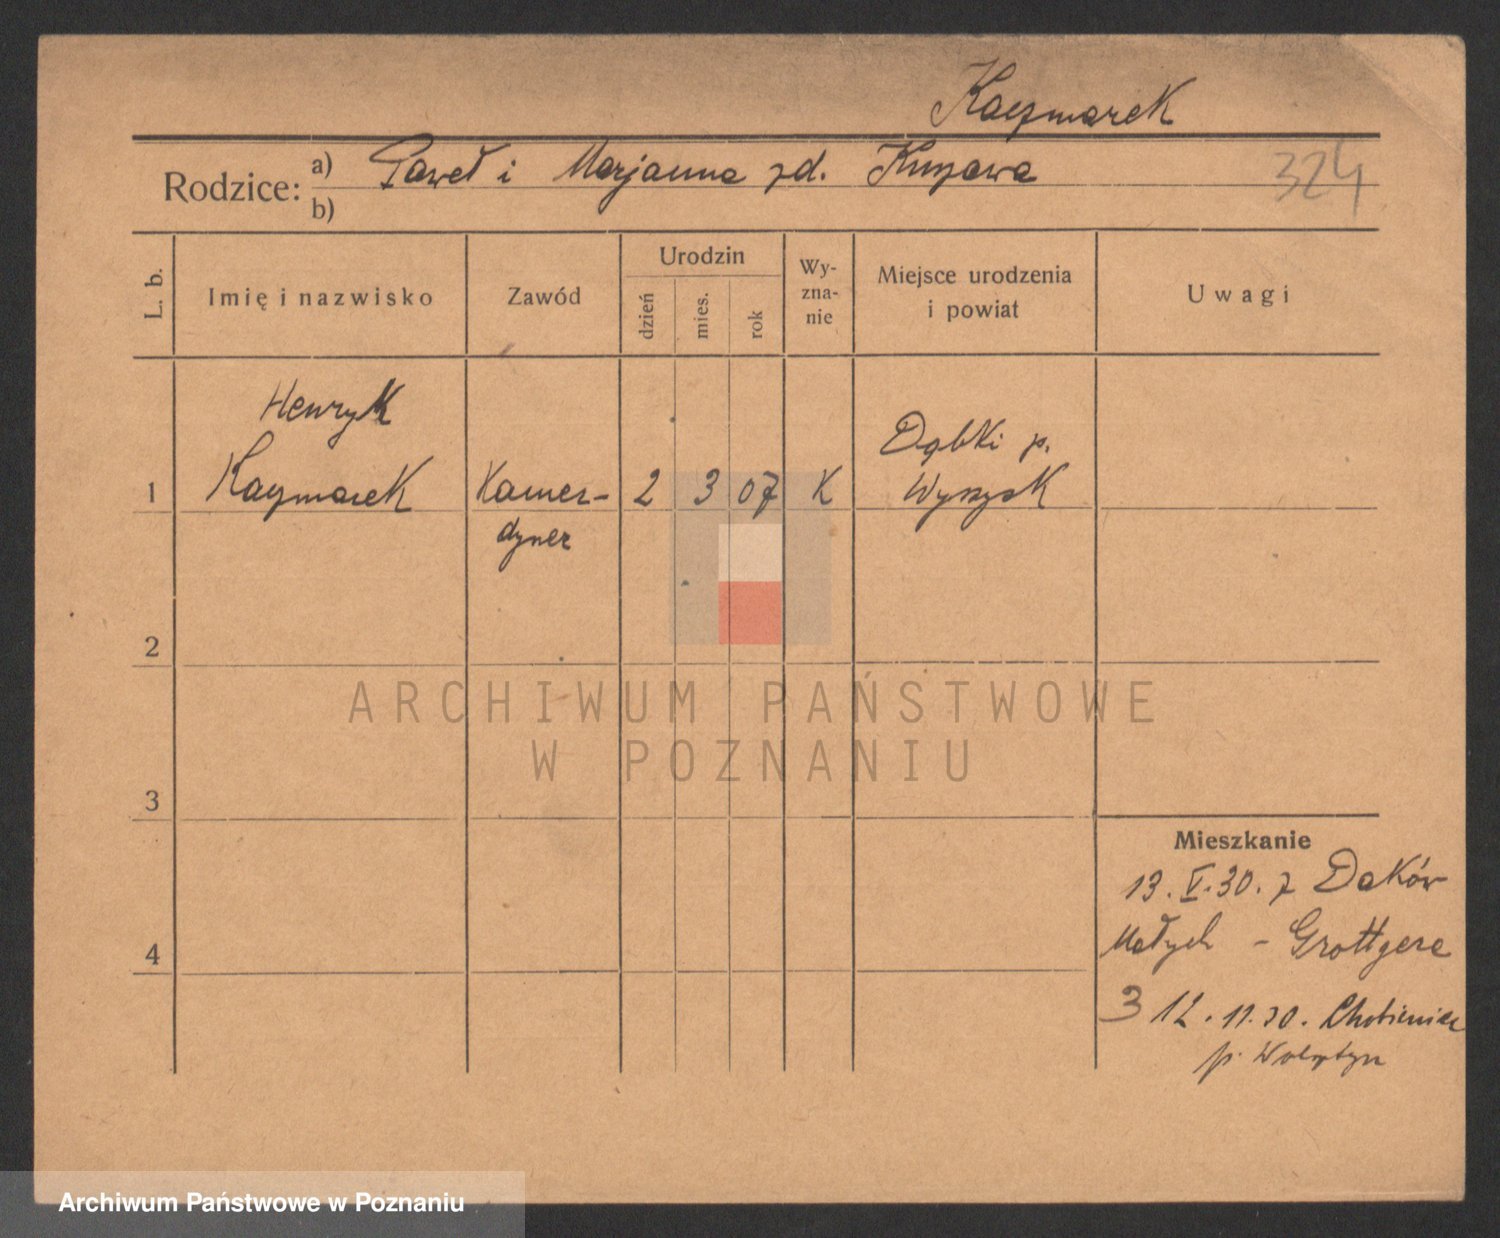 Kaczmarek
Rodzice: a) Paweł i Marjanna zd. Kurzawa
b)
324
L. b.
Imię i nazwisko
Zawód
Urodzin
dzień
mies.
rok
Wy-
zna-
nie
Miejsce urodzenia
i powiat
Uwagi
Henryk
1 Kaczmarek Kamer- 2 3 07 K
dyner
Dąbki p.
Wyrzysk
2
ARCHIWUM PAŃSTWOWE
W POZNANIU
3
4
Mieszkanie
13.V.30. z Daków
Małych - Grottgera
3 12.11.30. Chobienice
p. Wolsztyn
Archiwum Państwowe w Poznaniu